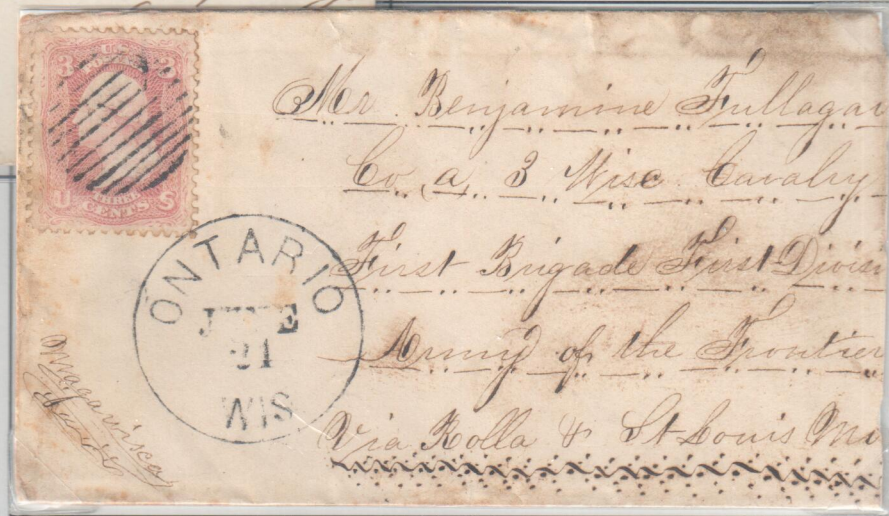 3 3
U THREE S
CENTS
ONTARIO
JUNE
21
WIS
Mr. Benjamine Fullagar
Co. a, 3 Wisc. Cavalry
First Brigade First Divisi
Army of the Frontier
Via Rolla & St Louis Mo